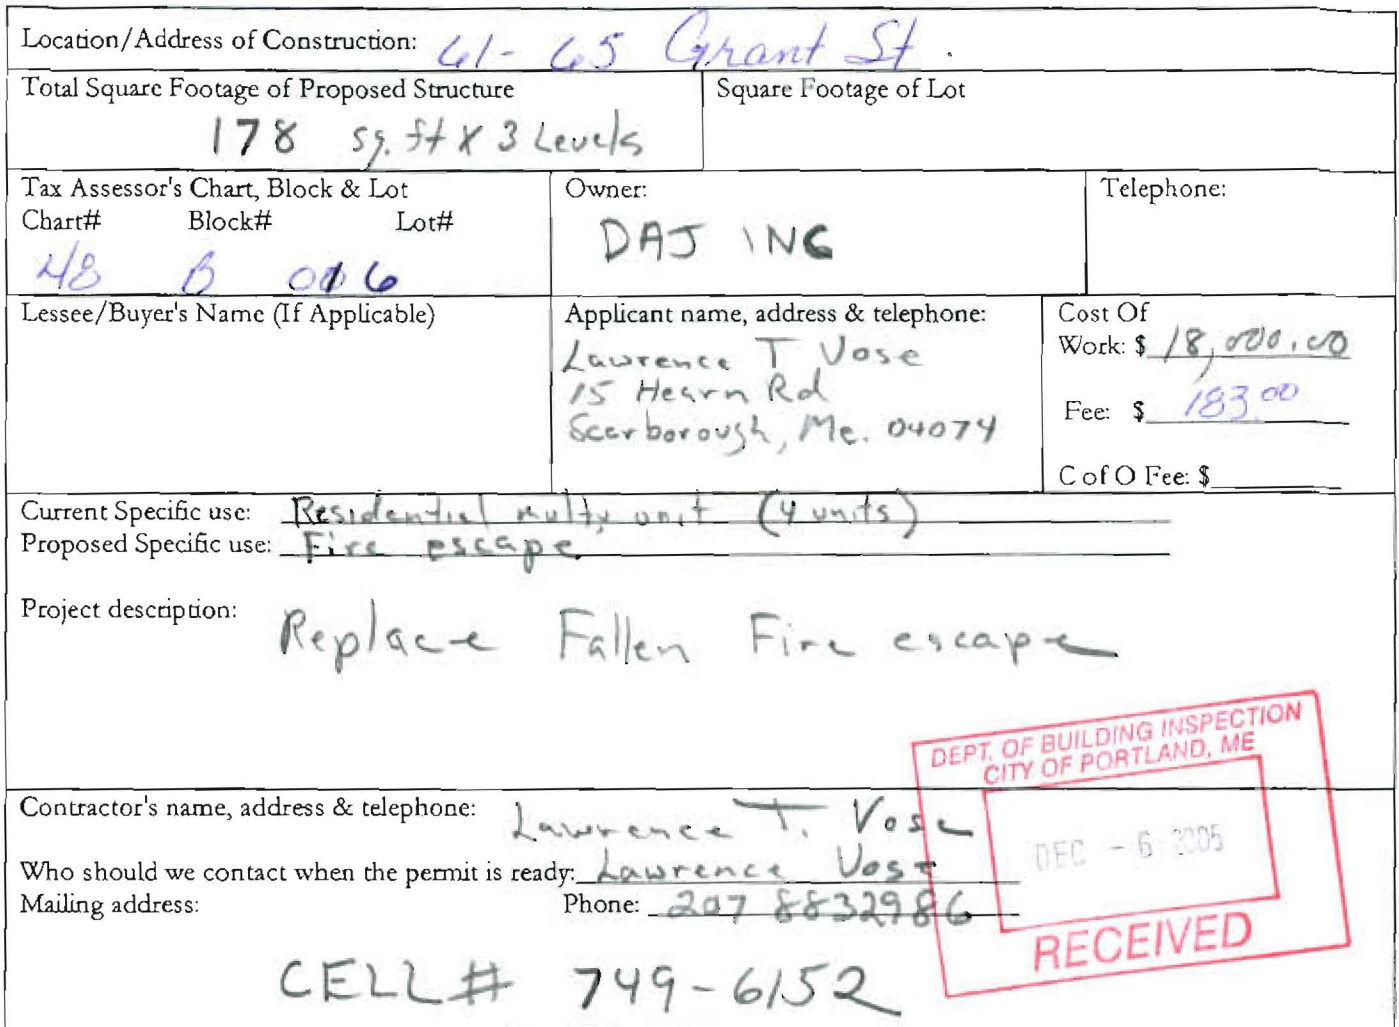 Location/Address of Construction: 61-65 Grant St.
Total Square Footage of Proposed Structure
178 sq. ft X 3 Levels
Square Footage of Lot
Tax Assessor's Chart, Block & Lot
Chart# Block# Lot#
48 B 016
Owner:
DAJ INC
Telephone:
Lessee/Buyer's Name (If Applicable)
Applicant name, address & telephone:
Lawrence T Vose
15 Hearn Rd
Scarborough, Me. 04074
Cost Of
Work: $ 18,000.00
Fee: $ 183.00
C of O Fee: $
Current Specific use: Residential multy unit (4 units)
Proposed Specific use: Fire escape
Project description: Replace Fallen Fire escape
DEPT. OF BUILDING INSPECTION
CITY OF PORTLAND, ME
DEC - 6 2005
RECEIVED
Contractor's name, address & telephone: Lawrence T. Vose
Who should we contact when the permit is ready: Lawrence Vose
Mailing address: Phone: 207 8832986
CELL # 749-6152